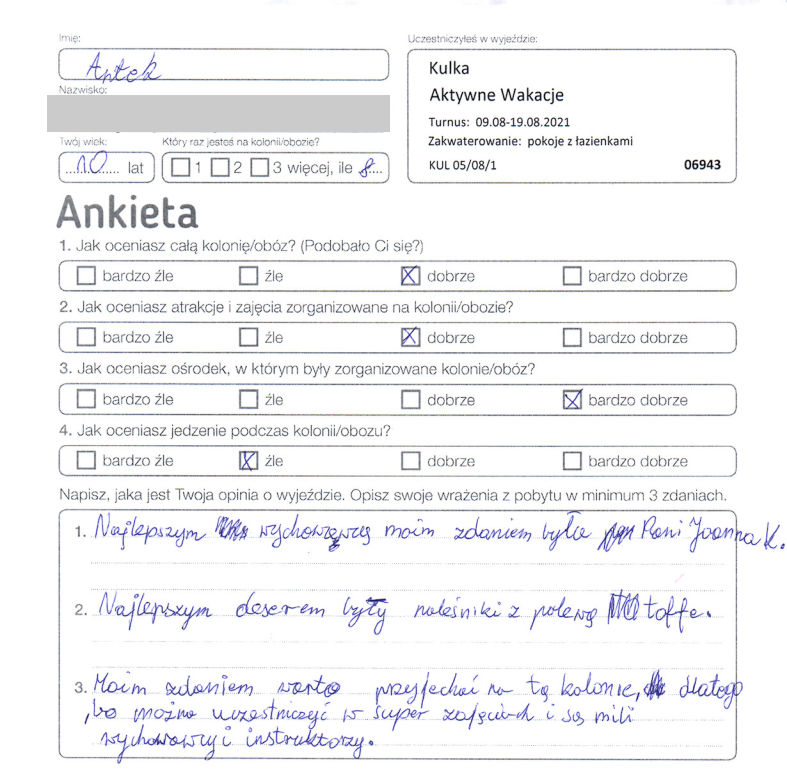 Imię:
Antek
Uczestniczyłeś w wyjeździe:
Kulka
Aktywne Wakacje
Turnus: 09.08-19.08.2021
Zakwaterowanie: pokoje z łazienkami
KUL 05/08/1 06943
Nazwisko:
Twój wiek: Który raz jesteś na kolonii/obozie?
10 lat 1 2 3 więcej, ile 8
Ankieta
1. Jak oceniasz całą kolonię/obóz? (Podobało Ci się?)
bardzo źle źle dobrze bardzo dobrze
2. Jak oceniasz atrakcje i zajęcia zorganizowane na kolonii/obozie?
bardzo źle źle dobrze bardzo dobrze
3. Jak oceniasz ośrodek, w którym były zorganizowane kolonie/obóz?
bardzo źle źle dobrze bardzo dobrze
4. Jak oceniasz jedzenie podczas kolonii/obozu?
bardzo źle źle dobrze bardzo dobrze
Napisz, jaka jest Twoja opinia o wyjeździe. Opisz swoje wrażenia z pobytu w minimum 3 zdaniach.
1. Najlepszym wychowawcą moim zdaniem była Pani Joanna K.
2. Najlepszym deserem były naleśniki z polewą toffe.
3. Moim zdaniem warto przyjechać na tą kolonie, dlatego
,bo można uczestniczyć w super zajęciach i są mili
wychowawcy i instruktorzy.